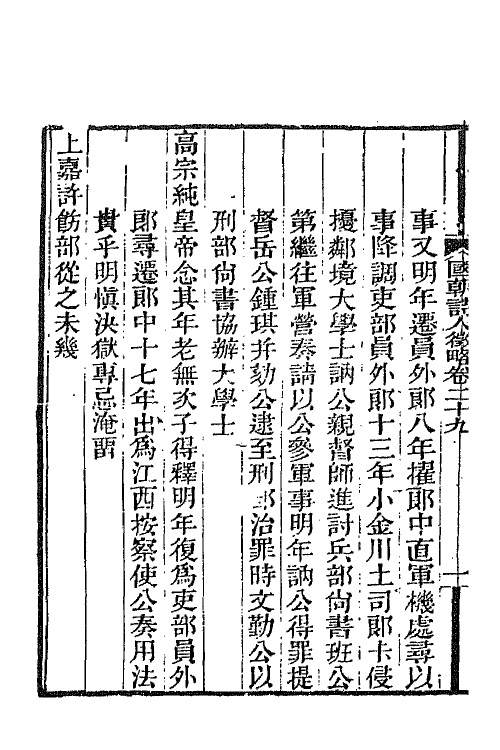 國朝詩人徵略卷二十九
事又明年遷員外郎八年擢郎中直軍機處尋以
事降調吏部員外郎十三年小金川土司郎卡侵
擾鄰境大學士訥公親督師進討兵部尙書班公
第繼往軍營奏請以公參軍事明年訥公得罪提
督岳公鍾琪幷劾公逮至刑部治罪時文勤公以
刑部尙書協辦大學士
高宗純皇帝念其年老無次子得釋明年復爲吏部員外
郎尋遷郎中十七年出爲江西按察使公奏用法
貴乎明愼決獄專忌淹畱
上嘉許飭部從之未幾